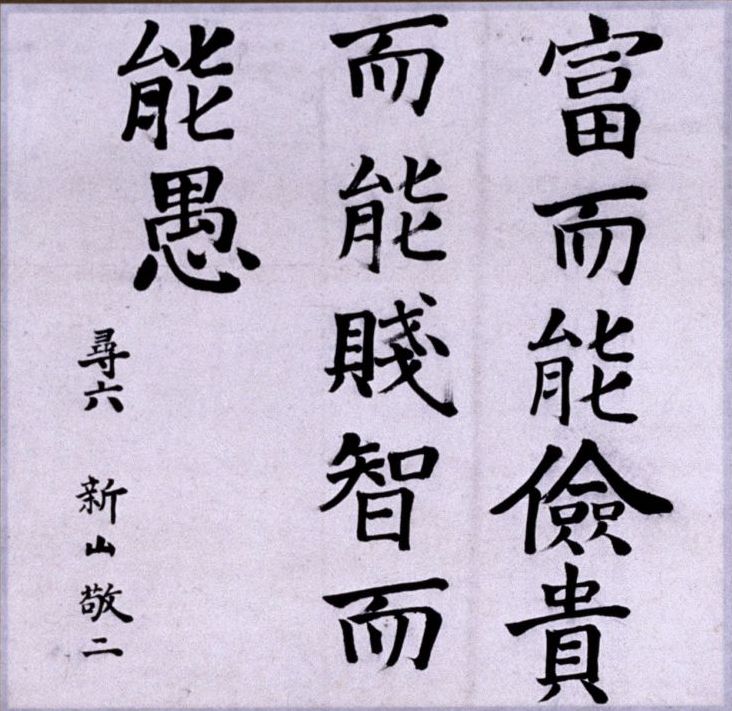 富而能儉貴
而能賤智而
能愚
尋六 新山敬二